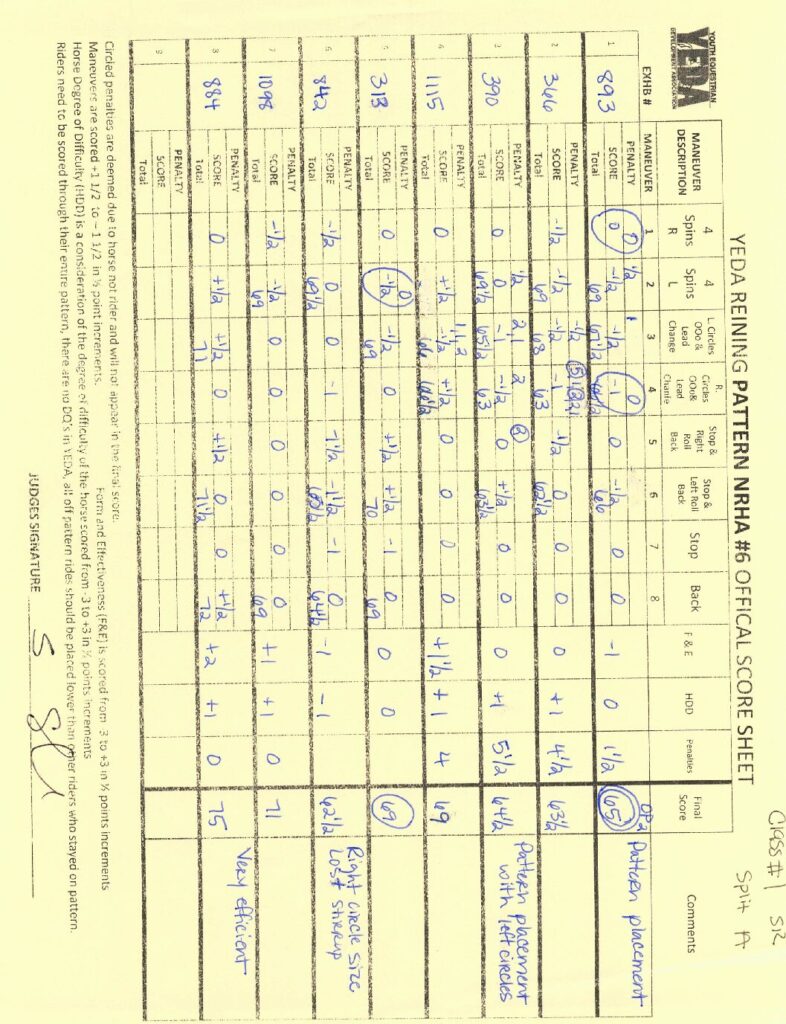 Class #1 SR
Split A
YOUTH EQUESTRIAN
YEDA
DEVELOPMENT ASSOCIATION
YEDA REINING PATTERN NRHA #6 OFFICAL SCORE SHEET
EXHB # MANEUVER DESCRIPTION 4 Spins R 4 Spins L L. Circles OOo & Lead Change R. Circles OOo& Lead Change Stop & Right Roll Back Stop & Left Roll Back Stop Back F & E HDD Penalties Final Score Comments
MANEUVER 1 2 3 4 5 6 7 8
1 893
PENALTY 0 1/2 1 0 OP2
SCORE 0 -1/2 -1/2 -1 0 -1/2 0 0 -1 0 1 1/2 65 Pattern placement
Total 69 67 1/2 66
2 366
PENALTY -1/2
SCORE -1/2 -1/2 -1/2 -1 -1/2 0 0 0 0 +1 4 1/2 63 1/2
Total 69 68 63 62 1/2
3 390
PENALTY 1/2 2,1 2 2
SCORE 0 0 -1 -1/2 0 +1/2 0 0 0 +1 5 1/2 64 1/2 Pattern placement with left circles
Total 69 1/2 65 1/2 63 63 1/2
4 1115
PENALTY 1,1,2
SCORE 0 +1/2 -1/2 +1/2 0 0 0 0 +1 1/2 +1 4 69
Total 66 66 1/2
5 313
PENALTY 0
SCORE 0 -1/2 -1/2 0 +1/2 +1/2 -1 0 0 0 69
Total 69 70 69
6 842
PENALTY
SCORE -1/2 0 0 -1 -1 1/2 -1 1/2 -1 0 -1 -1 62 1/2 Right circle size Lost stirrup
Total 69 1/2 64 1/2
7 1098
PENALTY
SCORE -1/2 -1/2 0 0 0 0 0 0 +1 +1 0 71
Total 69 69
8 884
PENALTY
SCORE 0 +1/2 +1/2 0 +1/2 0 0 +1/2 +2 +1 0 75 Very efficient
Total 71 71 1/2 72
9
PENALTY
SCORE
Total
Circled penalties are deemed due to horse not rider and will not appear in the final score.
Maneuvers are scored +1 1/2 to -1 1/2 in ½ point increments. Form and Effectiveness (F&E) is scored from -3 to +3 in ½ points increments
Horse Degree of Difficulty (HDD) is a consideration of the degree of difficulty of the horse scored from -3 to +3 in ½ points increments
Riders need to be scored through their entire pattern, there are no DQ's in YEDA, all off pattern rides should be placed lower than other riders who stayed on pattern.
JUDGES SIGNATURE